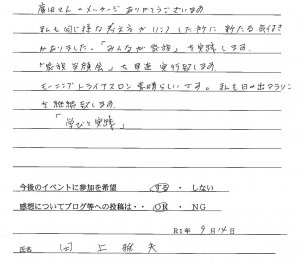 廣田さんのメッセージありがとうございます
私も同じ様な考え方が(に)した所に新たな気付き
がありました。「みんなが家族」を実践します。
「家族笑顔会」も早速実行致します
モーニングトライアスロン素晴らしいです。私も日の出マラソン
を継続致します。
「学びと実践」
今後のイベントに参加を希望 する ・ しない
感想についてブログ等への投稿は・・ OR ・ NG
R1年 9月14日
氏名